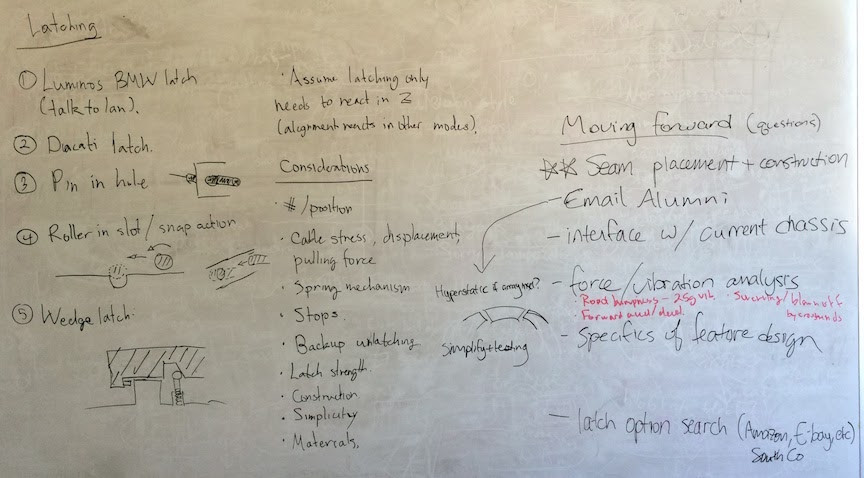 Latching
① Luminos BMW latch
(talk to Ian).
② Ducati latch.
③ Pin in hole
④ Roller in slot / snap action
⑤ Wedge latch.
· Assume latching only
needs to react in Z
(alignment reacts in other modes).
Considerations
· # / position
· Cable stress, displacement,
pulling force
· Spring mechanism
· Stops.
· Backup unlatching
· Latch strength
· Construction
· Simplicity
· Materials.
Moving forward (questions)
** Seam placement + construction
- Email Alumni
- interface w/ current chassis
Hyperstatic if arranged?
Simplify + testing
- force/vibration analysis
· Road bumpiness - 25g vib.
· Swerving / blown off
by crosswinds
· Forward accel/decel
- Specifics of feature design
- latch option search (Amazon, E-bay, etc)
South Co